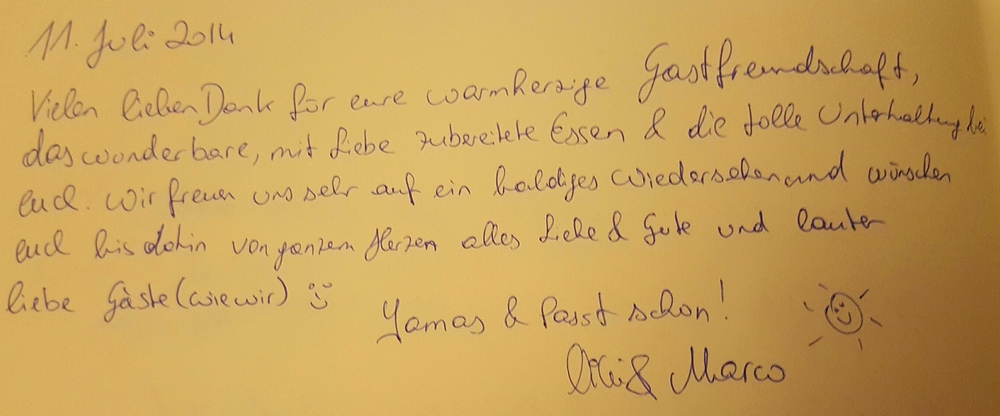 11. Juli 2014
Vielen lieben Dank für eure warmherzige Gastfreundschaft,
das wunderbare, mit Liebe zubereitete Essen & die tolle Unterhaltung bei
euch. Wir freuen uns sehr auf ein baldiges Wiedersehen und wünschen
euch bis dahin von ganzem Herzen alles Liebe & Gute und lauter
liebe Gäste (wie wir)
Yamas & Passt schon!
& Marco